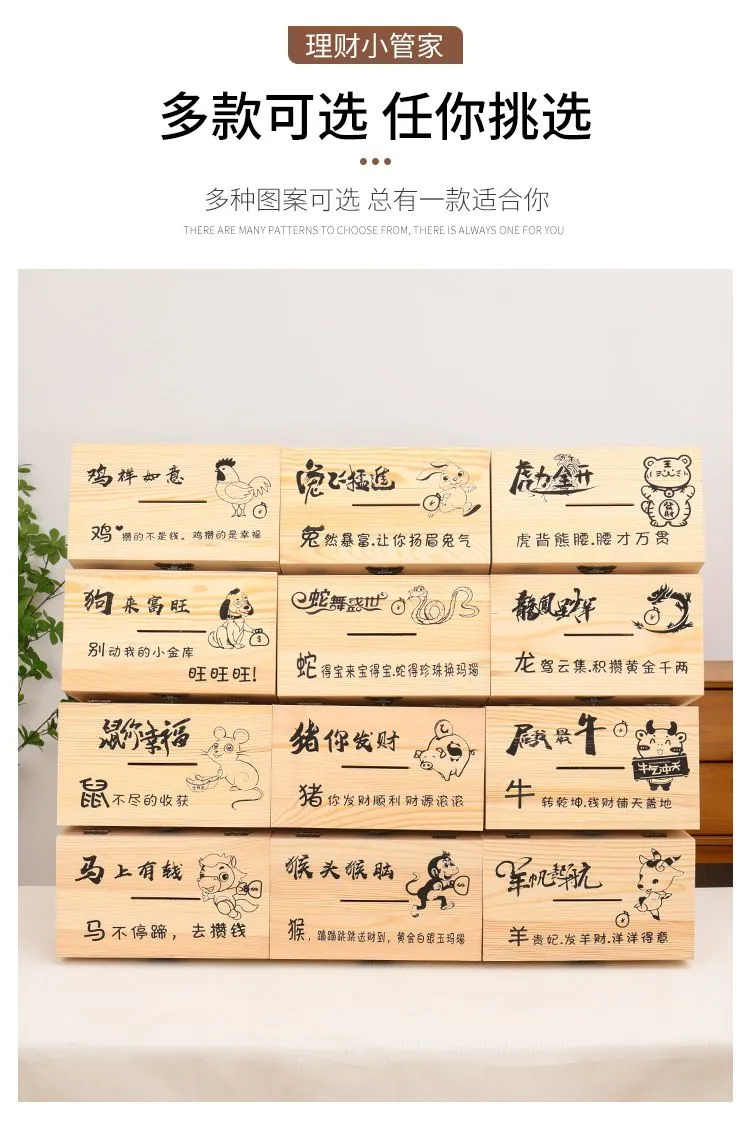 理财小管家
多款可选 任你挑选
多种图案可选 总有一款适合你
THERE ARE MANY PATTERNS TO CHOOSE FROM, THERE IS ALWAYS ONE FOR YOU
鸡祥如意
鸡攒的不是钱。鸡攒的是幸福
兔飞猛进
兔然暴富.让你扬眉兔气
虎力全开
王
發財
虎背熊腰.腰才万贯
狗来富旺
别动我的小金库
旺旺旺!
$
蛇舞盛世
蛇得宝来宝得宝.蛇得珍珠换玛瑙
龍鳳呈祥
龙驾云集.积攒黄金千两
鼠你幸福
鼠不尽的收获
猪你发财
猪你发财顺利 财源滚滚
属我最牛
牛气冲天
牛转乾坤.钱财铺天盖地
马上有钱
马不停蹄，去攒钱
猴头猴脑
猴，蹦蹦跳跳送财到，黄金白银玉玛瑙
羊帆起航
羊贵妃.发羊财.洋洋得意